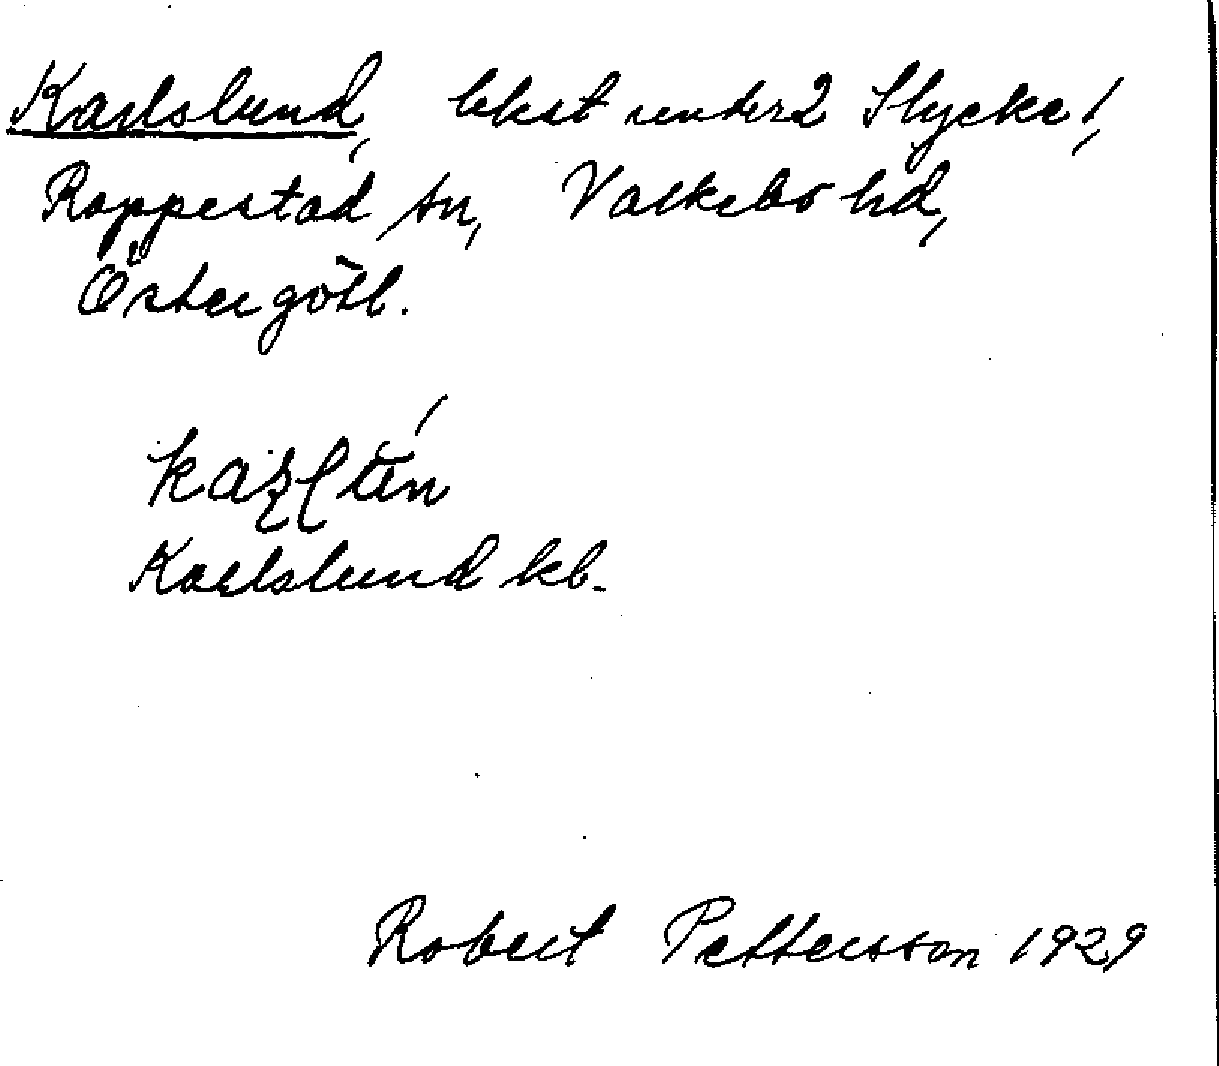 Karlslund, lhst under 2 Stycke 1,
Rappestad sn, Valkebo hd,
Östergötl.
Karlslund kb.
Robert Pettersson 1929